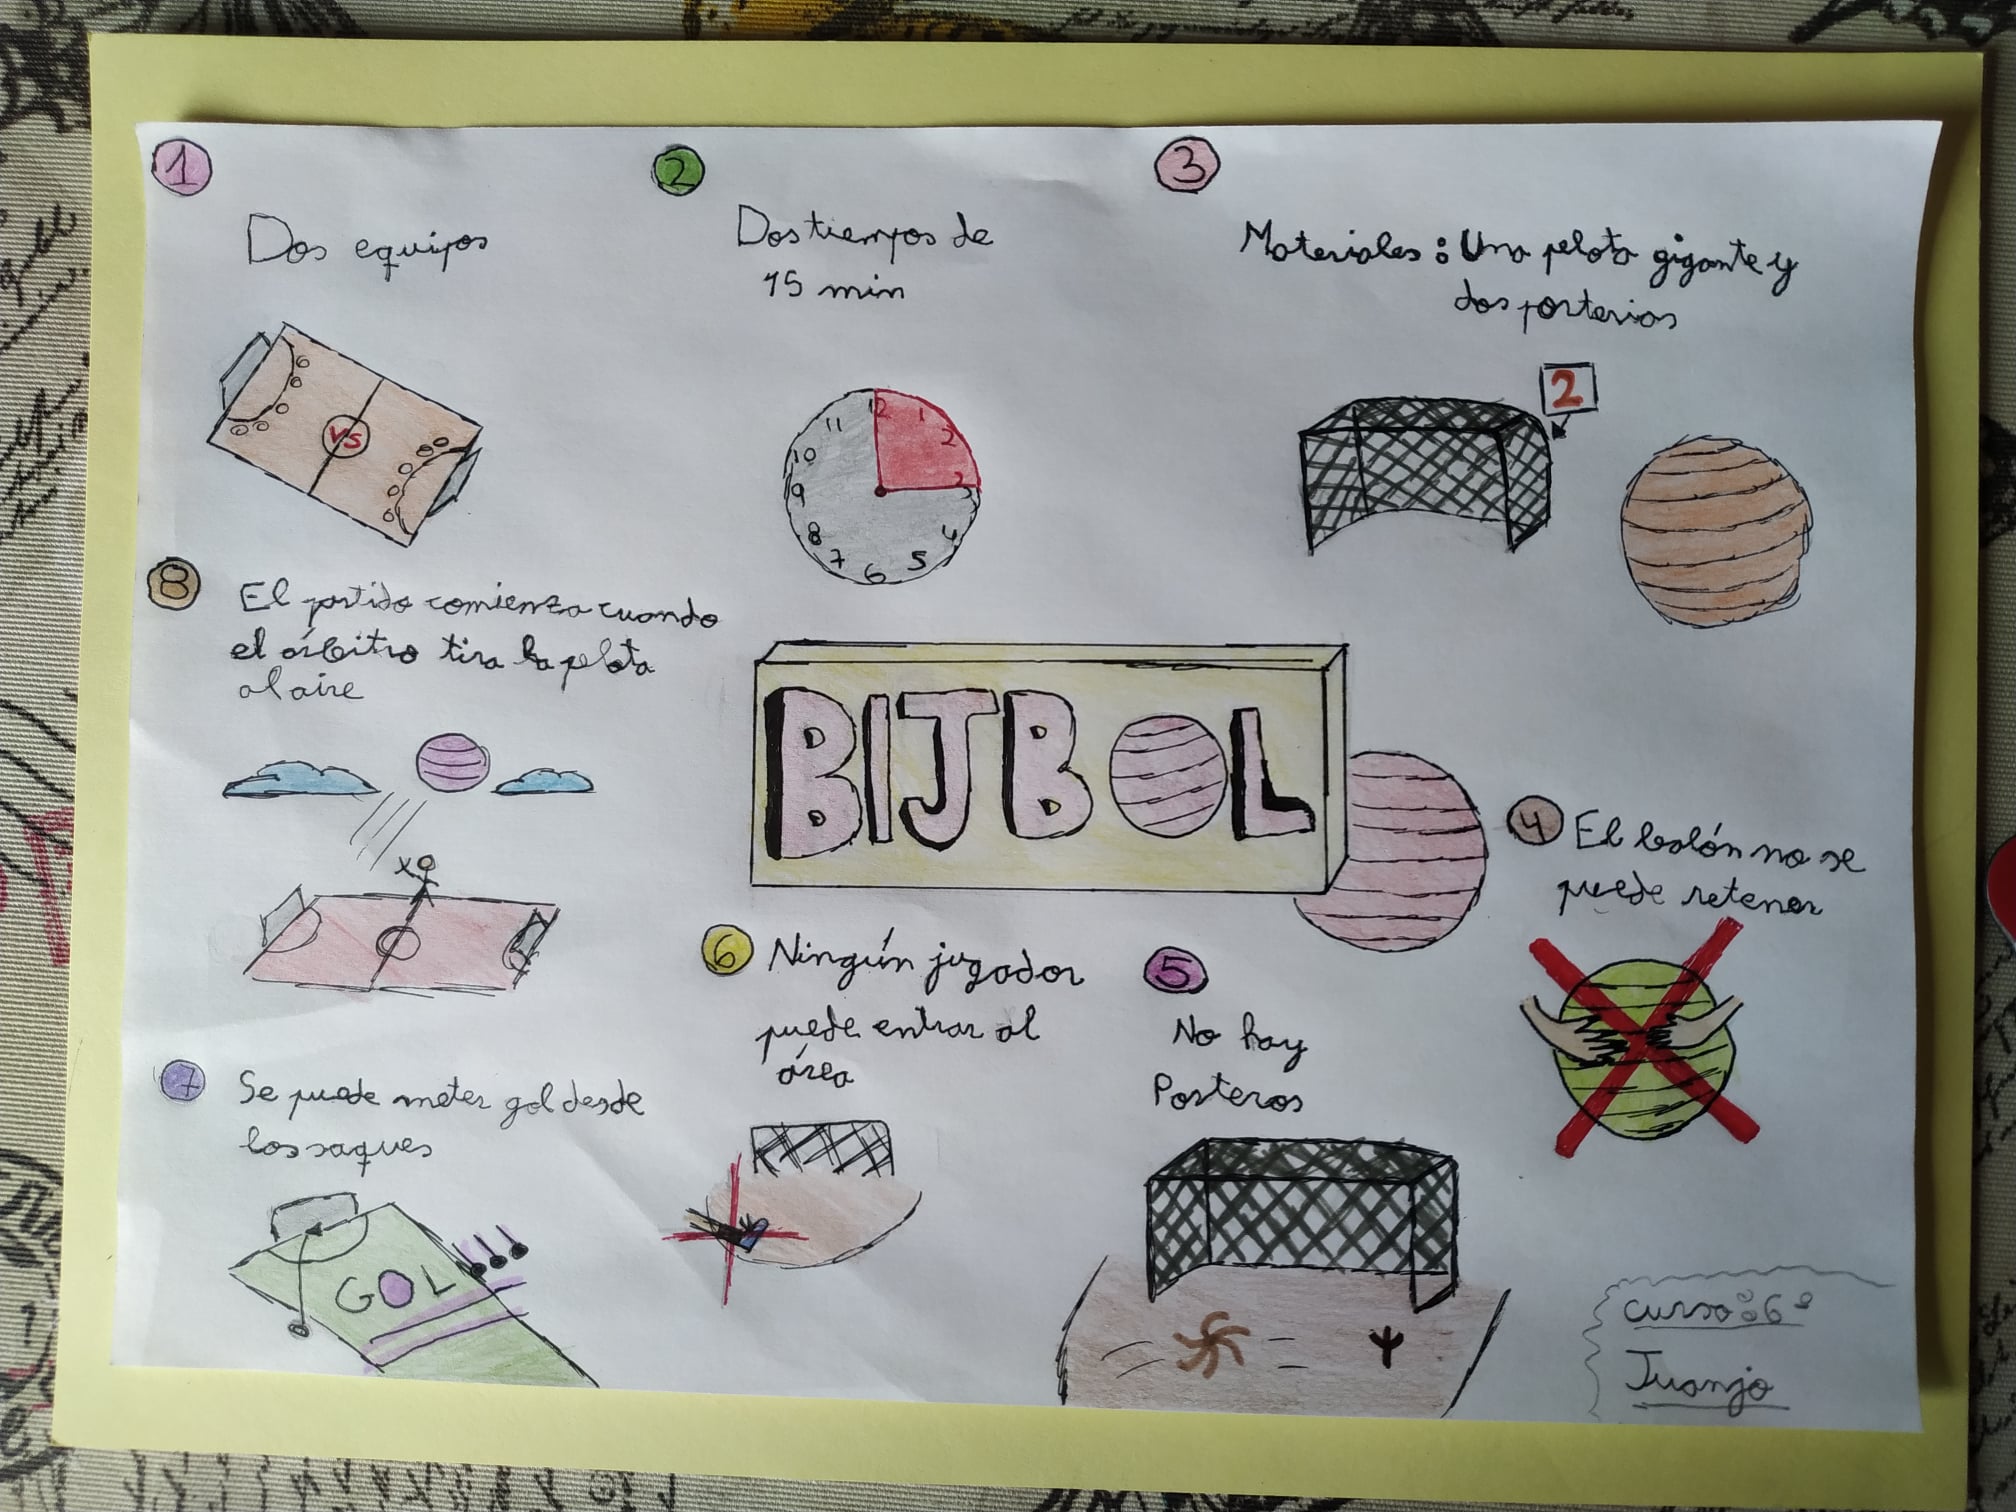 1
Dos equipos
VS
2
Dos tiempos de
15 min
12
1
2
3
4
5
6
7
8
9
10
11
3
Materiales: Una pelota gigante y
dos porterias
2
BIJBOL
4
El balón no se
puede retener
5
No hay
Porteros
6
Ningún jugador
puede entrar al
área
7
Se puede meter gol desde
los saques
GOL
8
El partido comienza cuando
el árbitro tira la pelota
al aire
curso: 6º
Juanjo